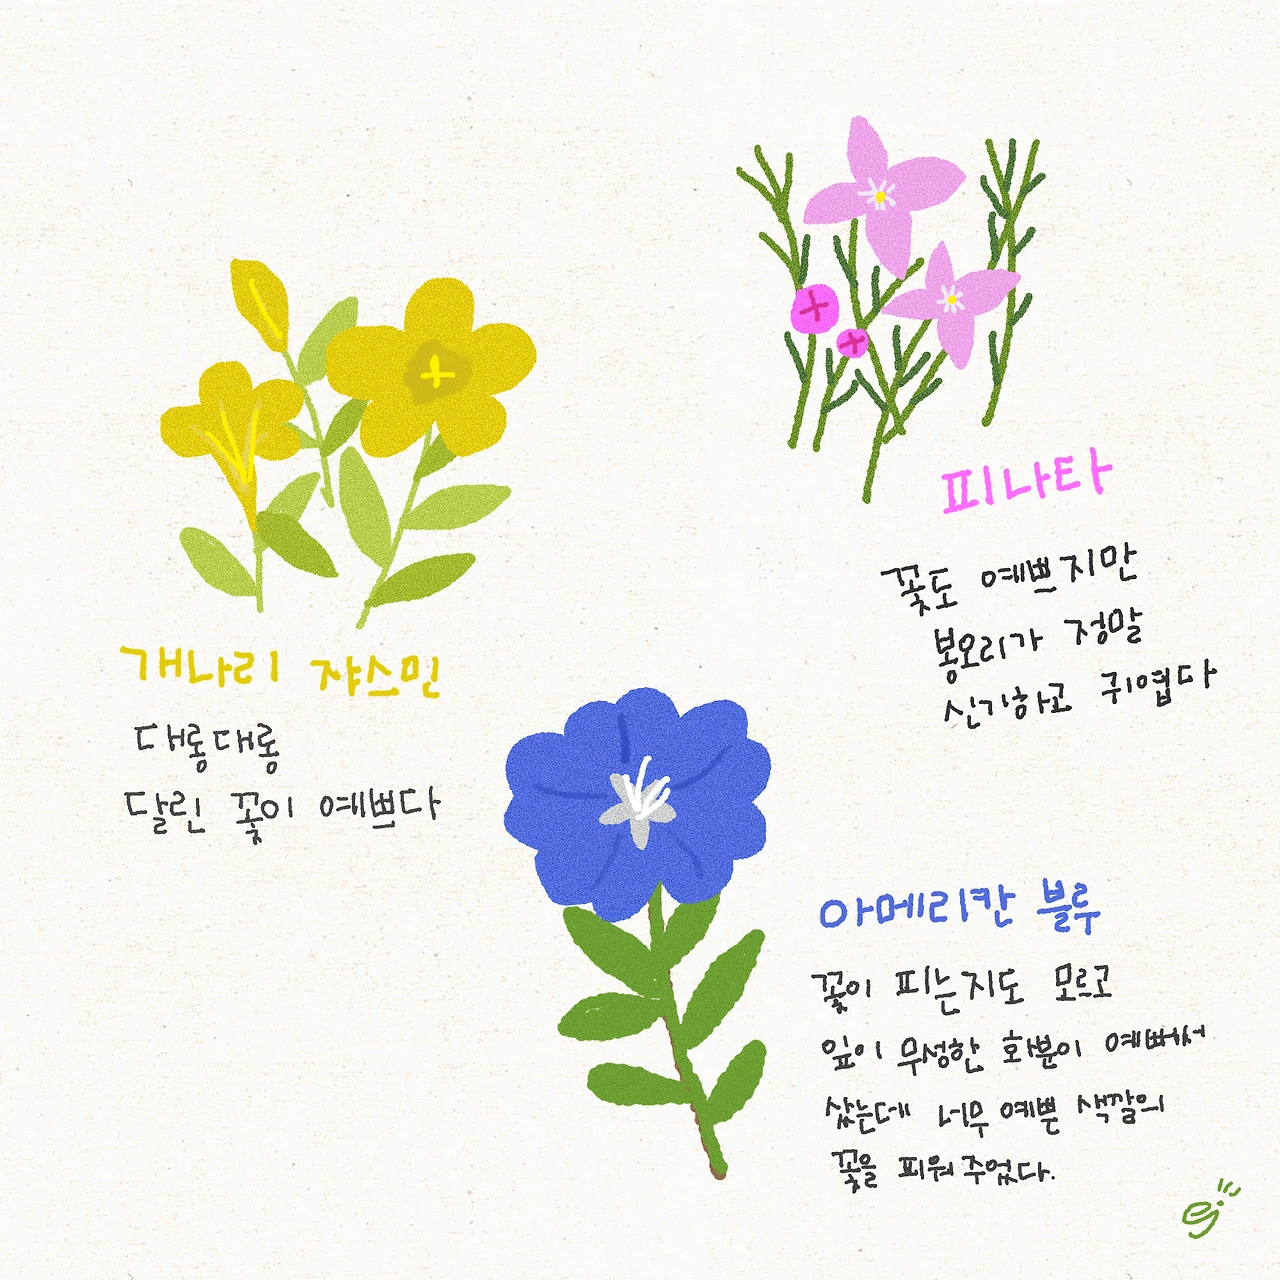 개나리 쟈스민
대롱대롱
달린 꽃이 예쁘다
피나타
꽃도 예쁘지만
봉오리가 정말
신기하고 귀엽다
아메리칸 블루
꽃이 피는지도 모르고
잎이 무성한 화분이 예뻐서
샀는데 너무 예쁜 색깔의
꽃을 피워주었다.